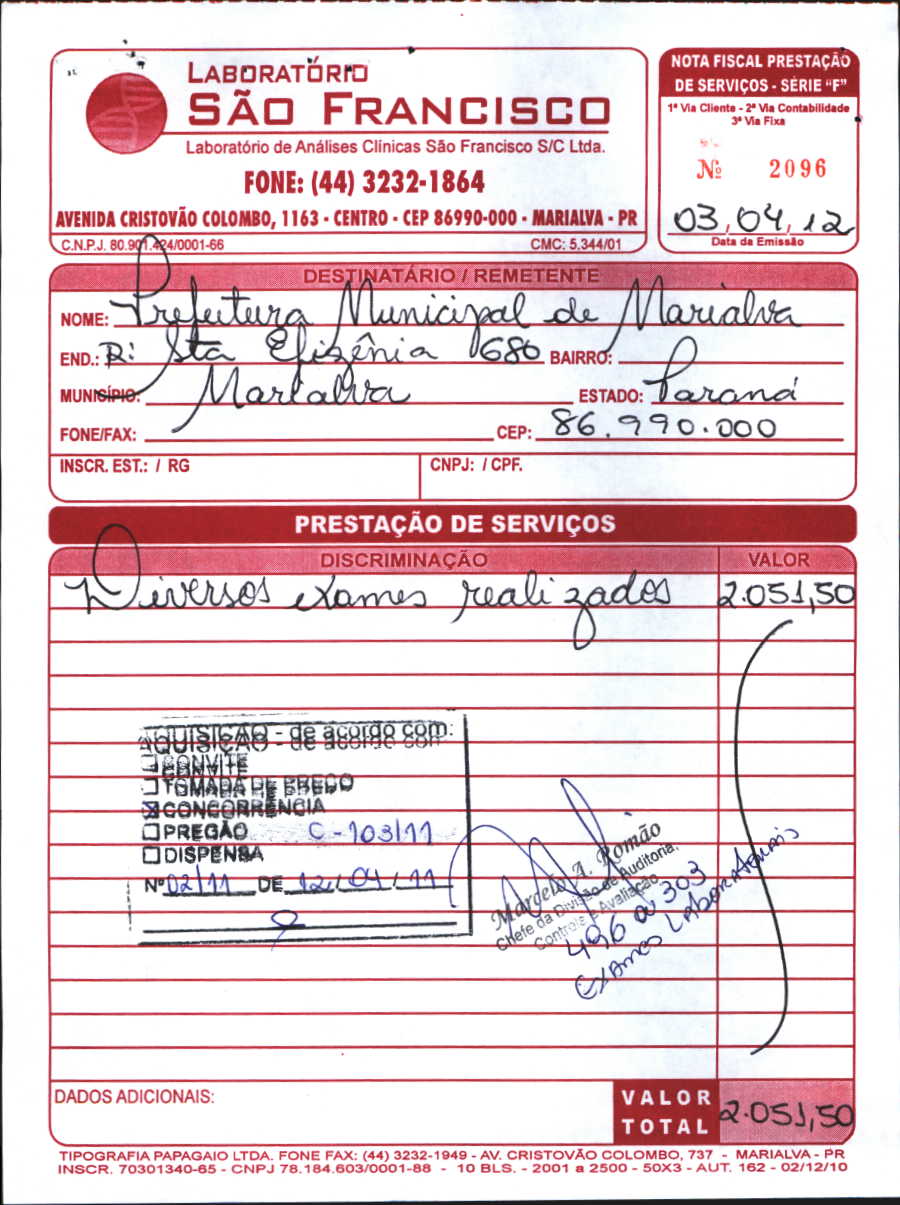 LABORATÓRIO
SÃO FRANCISCO
Laboratório de Análises Clínicas São Francisco S/C Ltda.
FONE: (44) 3232-1864
AVENIDA CRISTOVÃO COLOMBO, 1163 - CENTRO - CEP 86990-000 - MARIALVA - PR
C.N.P.J. 80.901.424/0001-66 CMC: 5.344/01
NOTA FISCAL PRESTAÇÃO
DE SERVIÇOS - SÉRIE “F”
1ª Via Cliente - 2ª Via Contabilidade
3ª Via Fixa
Nº 2096
03,04,12
Data da Emissão
DESTINATÁRIO / REMETENTE
NOME: Prefeitura Municipal de Marialva
END.: R: Sta Efigênia 680 BAIRRO:
MUNICÍPIO: Marialva ESTADO: Paraná
FONE/FAX: CEP: 86.990.000
INSCR. EST.: / RG CNPJ: / CPF.
PRESTAÇÃO DE SERVIÇOS
DISCRIMINAÇÃO VALOR
Diversos exames realizados 2.051,50
AQUISIÇÃO - de acordo com:
CONVITE
TOMADA DE PREÇO
CONCORRÊNCIA
PREGÃO C-103/11
DISPENSA
Nº 02/11 DE 12/04/11
Marcelo A. Romão
Chefe da Divisão de Auditoria,
Controle e Avaliação
496 a 303
Exames Laboratoriais
DADOS ADICIONAIS:
VALOR TOTAL 2.051,50
TIPOGRAFIA PAPAGAIO LTDA. FONE FAX: (44) 3232-1949 - AV. CRISTOVÃO COLOMBO, 737 - MARIALVA - PR
INSCR. 70301340-65 - CNPJ 78.184.603/0001-88 - 10 BLS. - 2001 a 2500 - 50X3 - AUT. 162 - 02/12/10